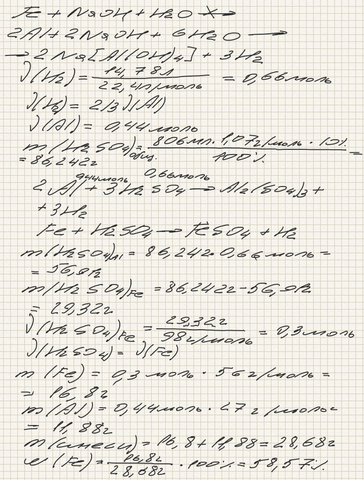 Fe + NaOH + H2O ↛
2Al + 2NaOH + 6H2O →
→ 2Na[Al(OH)4] + 3H2
ν(H2) = 14,78л / 22,4л/моль = 0,66моль
ν(H2) = 2/3ν(Al)
ν(Al) = 0,44моль
m(H2SO4)общ. = 806мл · 1,07г/моль · 10% / 100% =
= 86,242г
0,44моль 0,66моль
2Al + 3H2SO4 → Al2(SO4)3 +
+ 3H2
Fe + H2SO4 → FeSO4 + H2
m(H2SO4)Al = 86,242 · 0,66моль =
= 56,92г
m(H2SO4)Fe = 86,242г - 56,92г
= 29,32г
ν(H2SO4)Fe = 29,32г / 98г/моль = 0,3моль
ν(H2SO4) = ν(Fe)
m(Fe) = 0,3 моль · 56г/моль =
= 16,8г
m(Al) = 0,44моль · 27г/моль =
= 11,88г
m(смеси) = 16,8 + 11,88 = 28,68г
ω(Fe) = 16,8г / 28,68г · 100% = 58,57%